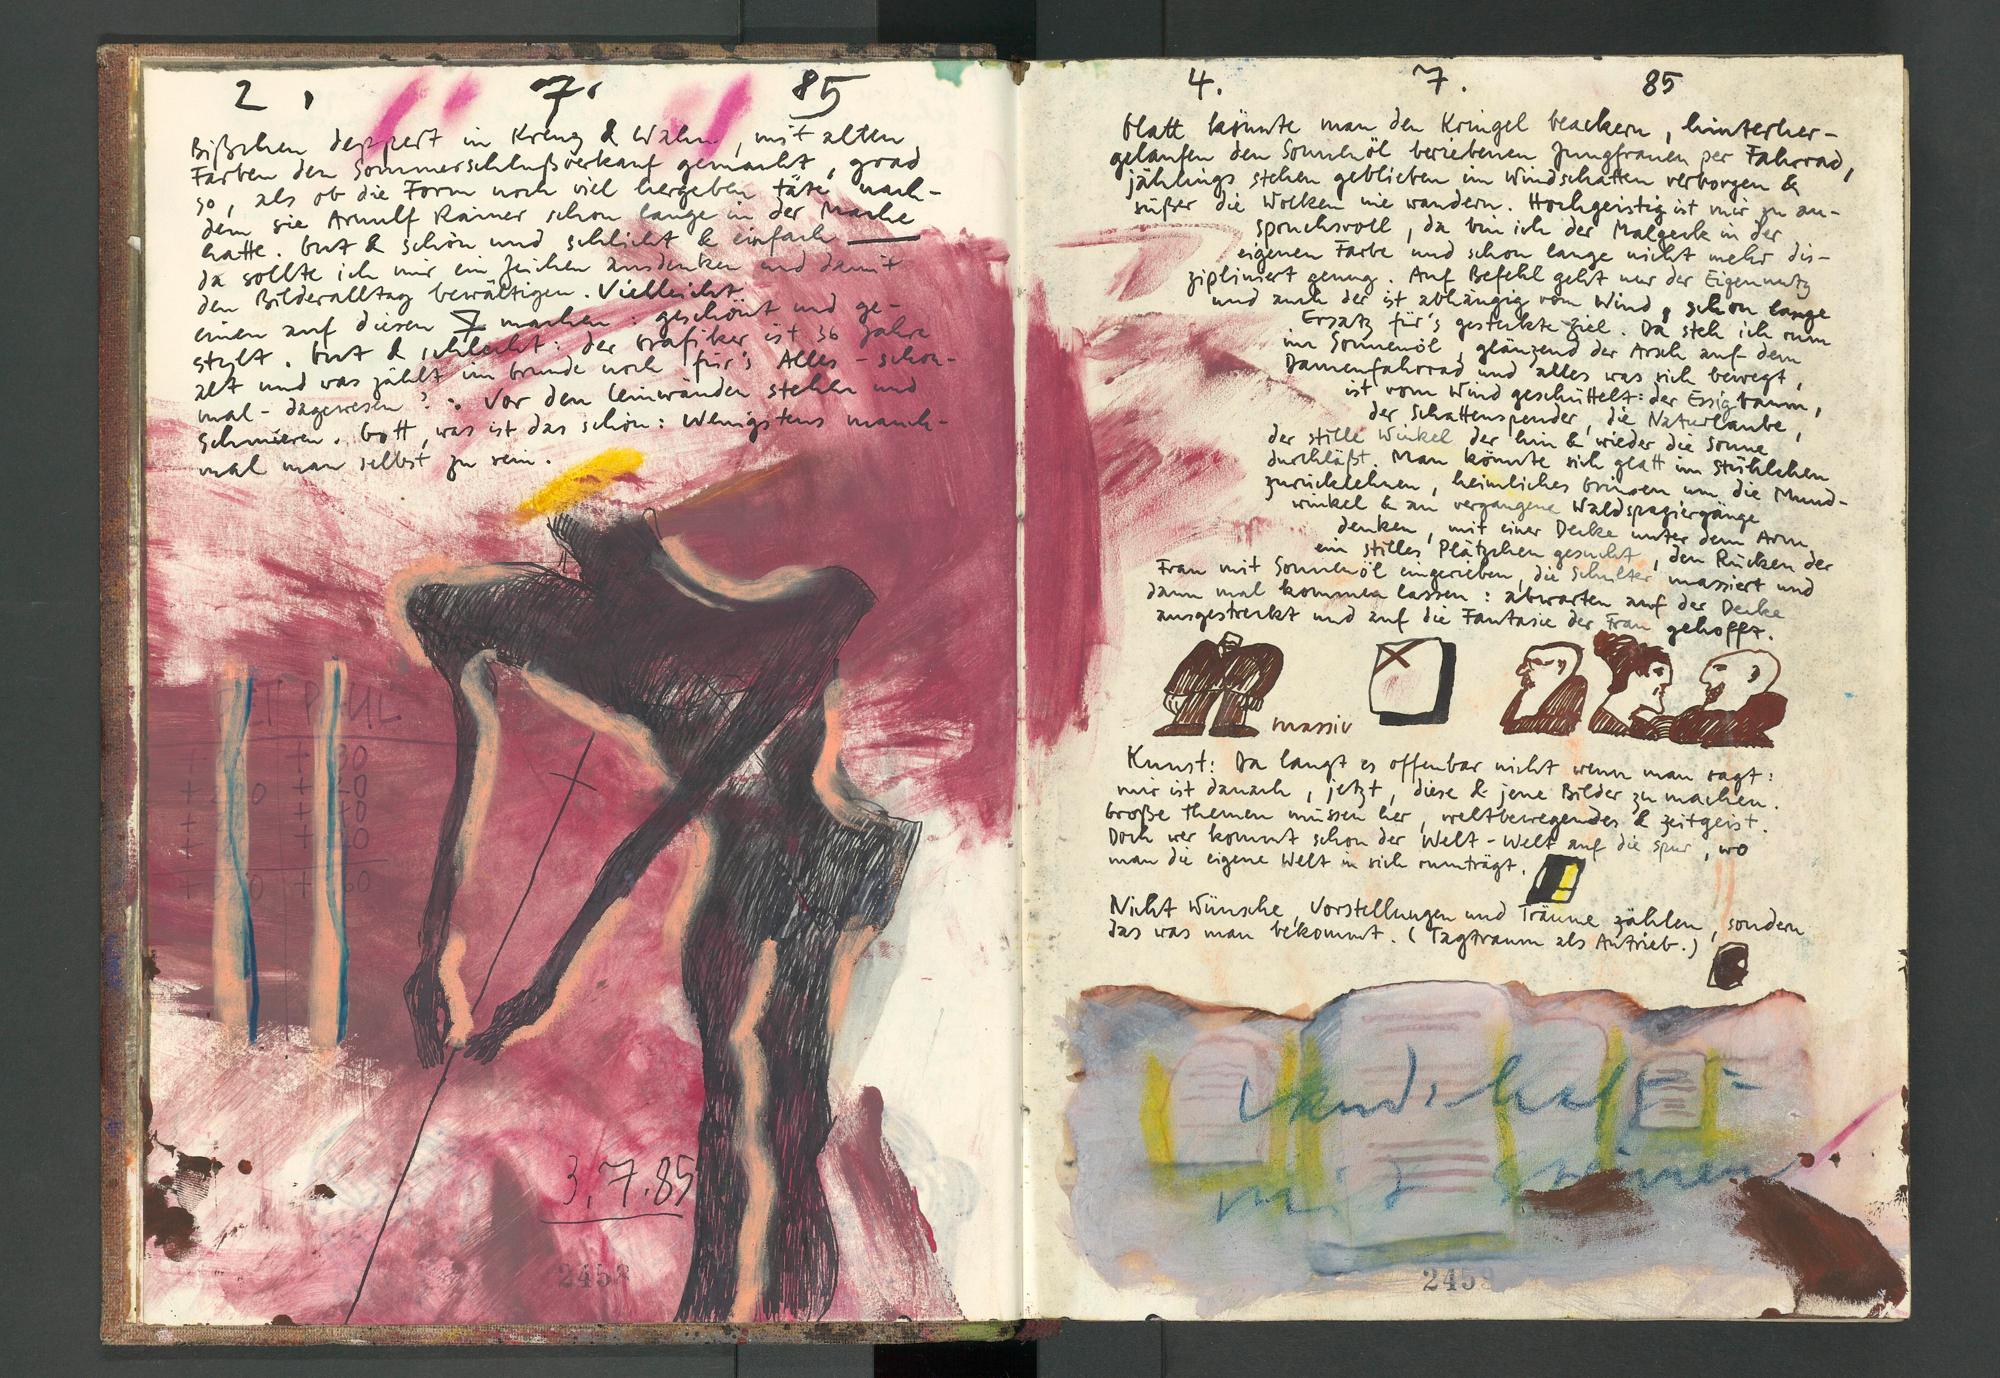 2. 7. 85
Bißchen deppert in Kreuz & Wahn, mit alten
Farben den Sommerschlußverkauf gemacht, grad
so, als ob die Form noch viel hergeben täte nach-
dem sie Arnulf Rainer schon lange in der Mache
hatte. Gut & schön und schlicht & einfach —
da sollte ich mir ein Zeichen ausdenken und damit
den Bilderalltag bewältigen. Vielleicht
einen auf diesen 7 machen: geschönt und ge-
stylt. Gut & schlecht: der Grafiker ist 36 Jahre
alt und was zählt im Grunde noch für's Alles - schon-
mal - dagewesen? : Vor den Leinwänden stehen und
Schmieren. Gott, was ist das schön: Wenigstens manch-
mal man selbst zu sein.
PAUL
3.7.85
2458
4. 7. 85
Glatt könnte man den Kringel beackern, hinterher-
gelaufen den Sonnenöl beriebenen Jungfrauen per Fahrrad,
jählings stehen geblieben im Windschatten verborgen &
süßer die Wolken nie wandern. Hochgeistig ist mir zu an-
spruchsvoll, da bin ich der Malgeck in der
eigenen Farbe und schon lange nicht mehr dis-
zipliniert genug. Auf Befehl geht nur der Eigennutz
und auch der ist abhängig vom Wind, schon lange
Ersatz für's gesteckte Ziel. Da steh ich rum
im Sonnenöl, glänzend der Arsch auf dem
Damenfahrrad und alles was sich bewegt,
ist vom Wind geschüttelt: der Essigbaum,
der Schattenspender, die Naturlaube,
der stille Winkel der hin & wieder die Sonne
durchläßt. Man könnte sich glatt im Stühlchen
zurücklehnen, heimliches Grinsen um die Mund-
winkel & an vergangene Waldspaziergänge
denken, mit einer Decke unter dem Arm
ein stilles Plätzchen gesucht, den Rücken der
Frau mit Sonnenöl eingerieben, die Schulter massiert und
dann mal kommen lassen: abwarten auf der Decke
ausgestreckt und auf die Fantasie der Frau gehofft.
massiv
Kunst: Da langt es offenbar nicht wenn man sagt:
mir ist danach, jetzt, diese & jene Bilder zu machen.
Große Themen müssen her, weltbewegendes & zeitgeist.
Doch wer kommt schon der Welt-Welt auf die Spur, wo
man die eigene Welt in sich rumträgt.
Nicht Wünsche, Vorstellungen und Träume zählen, sondern
das was man bekommt. (Tagtraum als Antrieb.)
Landschaft
mit Steinen
2458